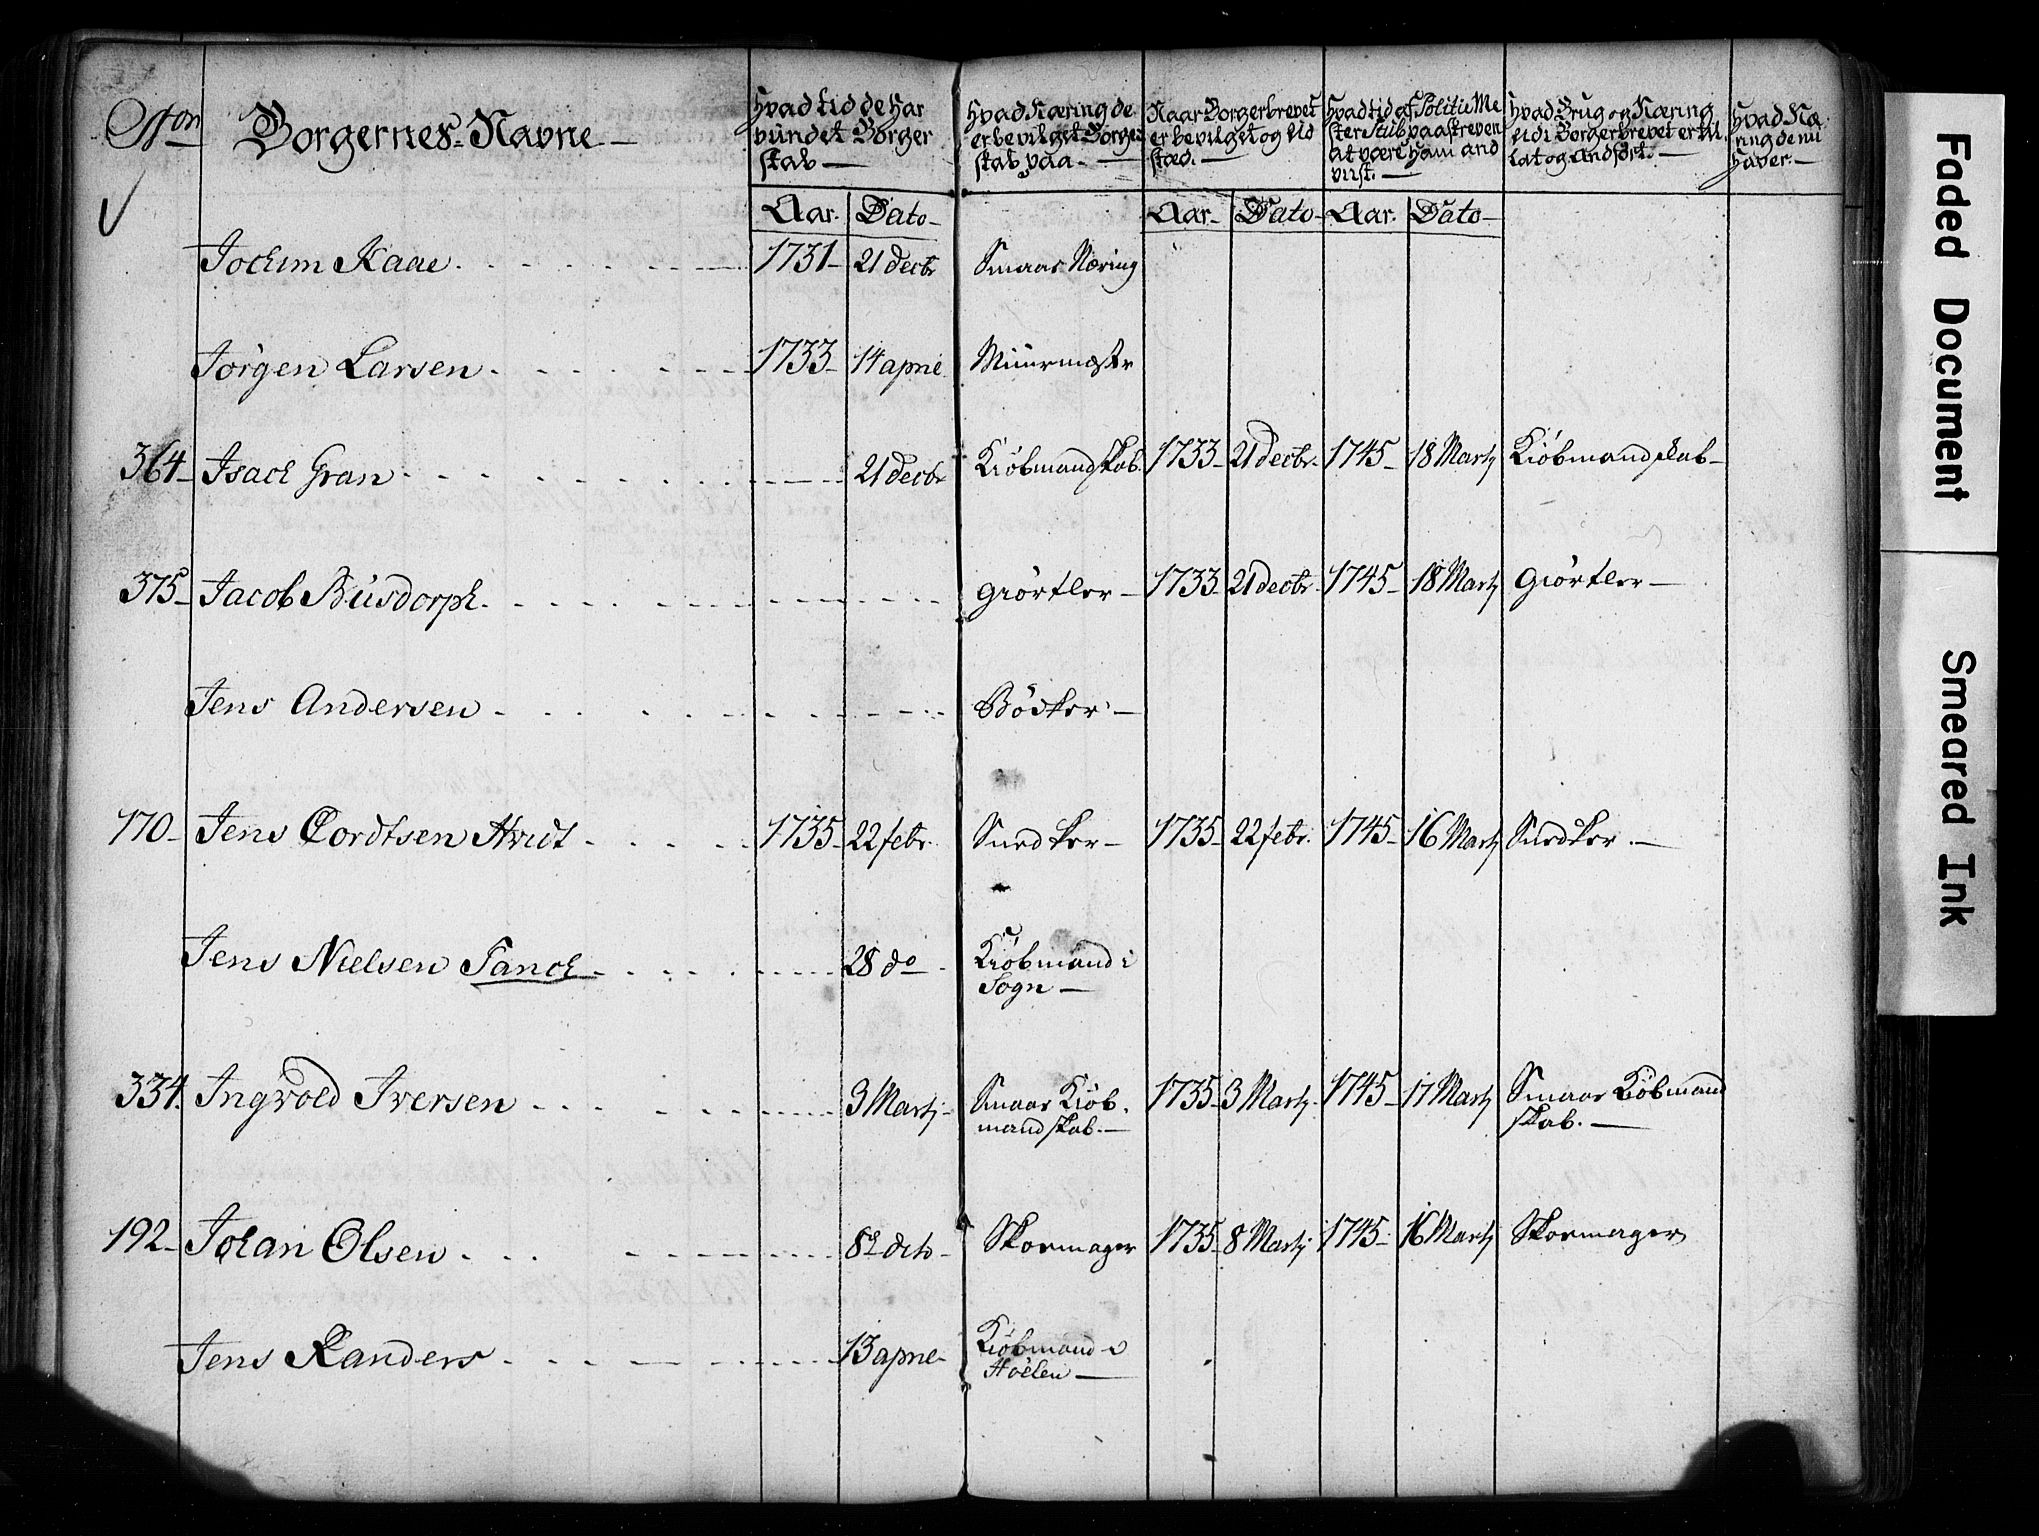 Nom Borgernes Navne
Hvad tid de har vundet Borger skab
Hvad Næring de er bevilget Borger skab paa
Naar Borgerbrevet er bevilget og Eid stæd.
Hvad tid af Politie Me ster Stub paaskreven at være ham and viist.
Hvad Brug og Næring eid i Borgerbrevet er til lat og andført.
Hvad Næ ring de nu haver.
Aar. Dato Aar. Dato Aar. Dato
Jochim Kaae 1731 21 Decbr Smaae Næring
Jörgen Larsen 1733 14 april Muurmæstr
364 Isach Gran 21 Decbr Kiöbmandskab 1733 21 Decbr. 1745 18 Martj Kiöbmandskab
375 Jacob Busdorph Giörtler 1733 21 Decbr. 1745 18 Martj Giörtler
Jens Andersen Bödker
170 Jens Cordtsen Hvidt 1735 22 febr. Snedker 1735 22 febr. 1745 16 Martj Snedker.
Jens Nielsen Fanch 28 do Kiöbmand i
Sogn
334. Ingvold Iversen 3 Martj Smaae Kiöb
mandskab. 1735 3 Martj. 1745 17 Martj Smaae Kiöbmand
skab.
192 Johan Olsen 8de dito Skoemager 1735 8 Martj 1745 16 Martj Skoemager
Jens Randers 13 april Kiöbmand i
Hölen
Faded Document
Smeared Ink